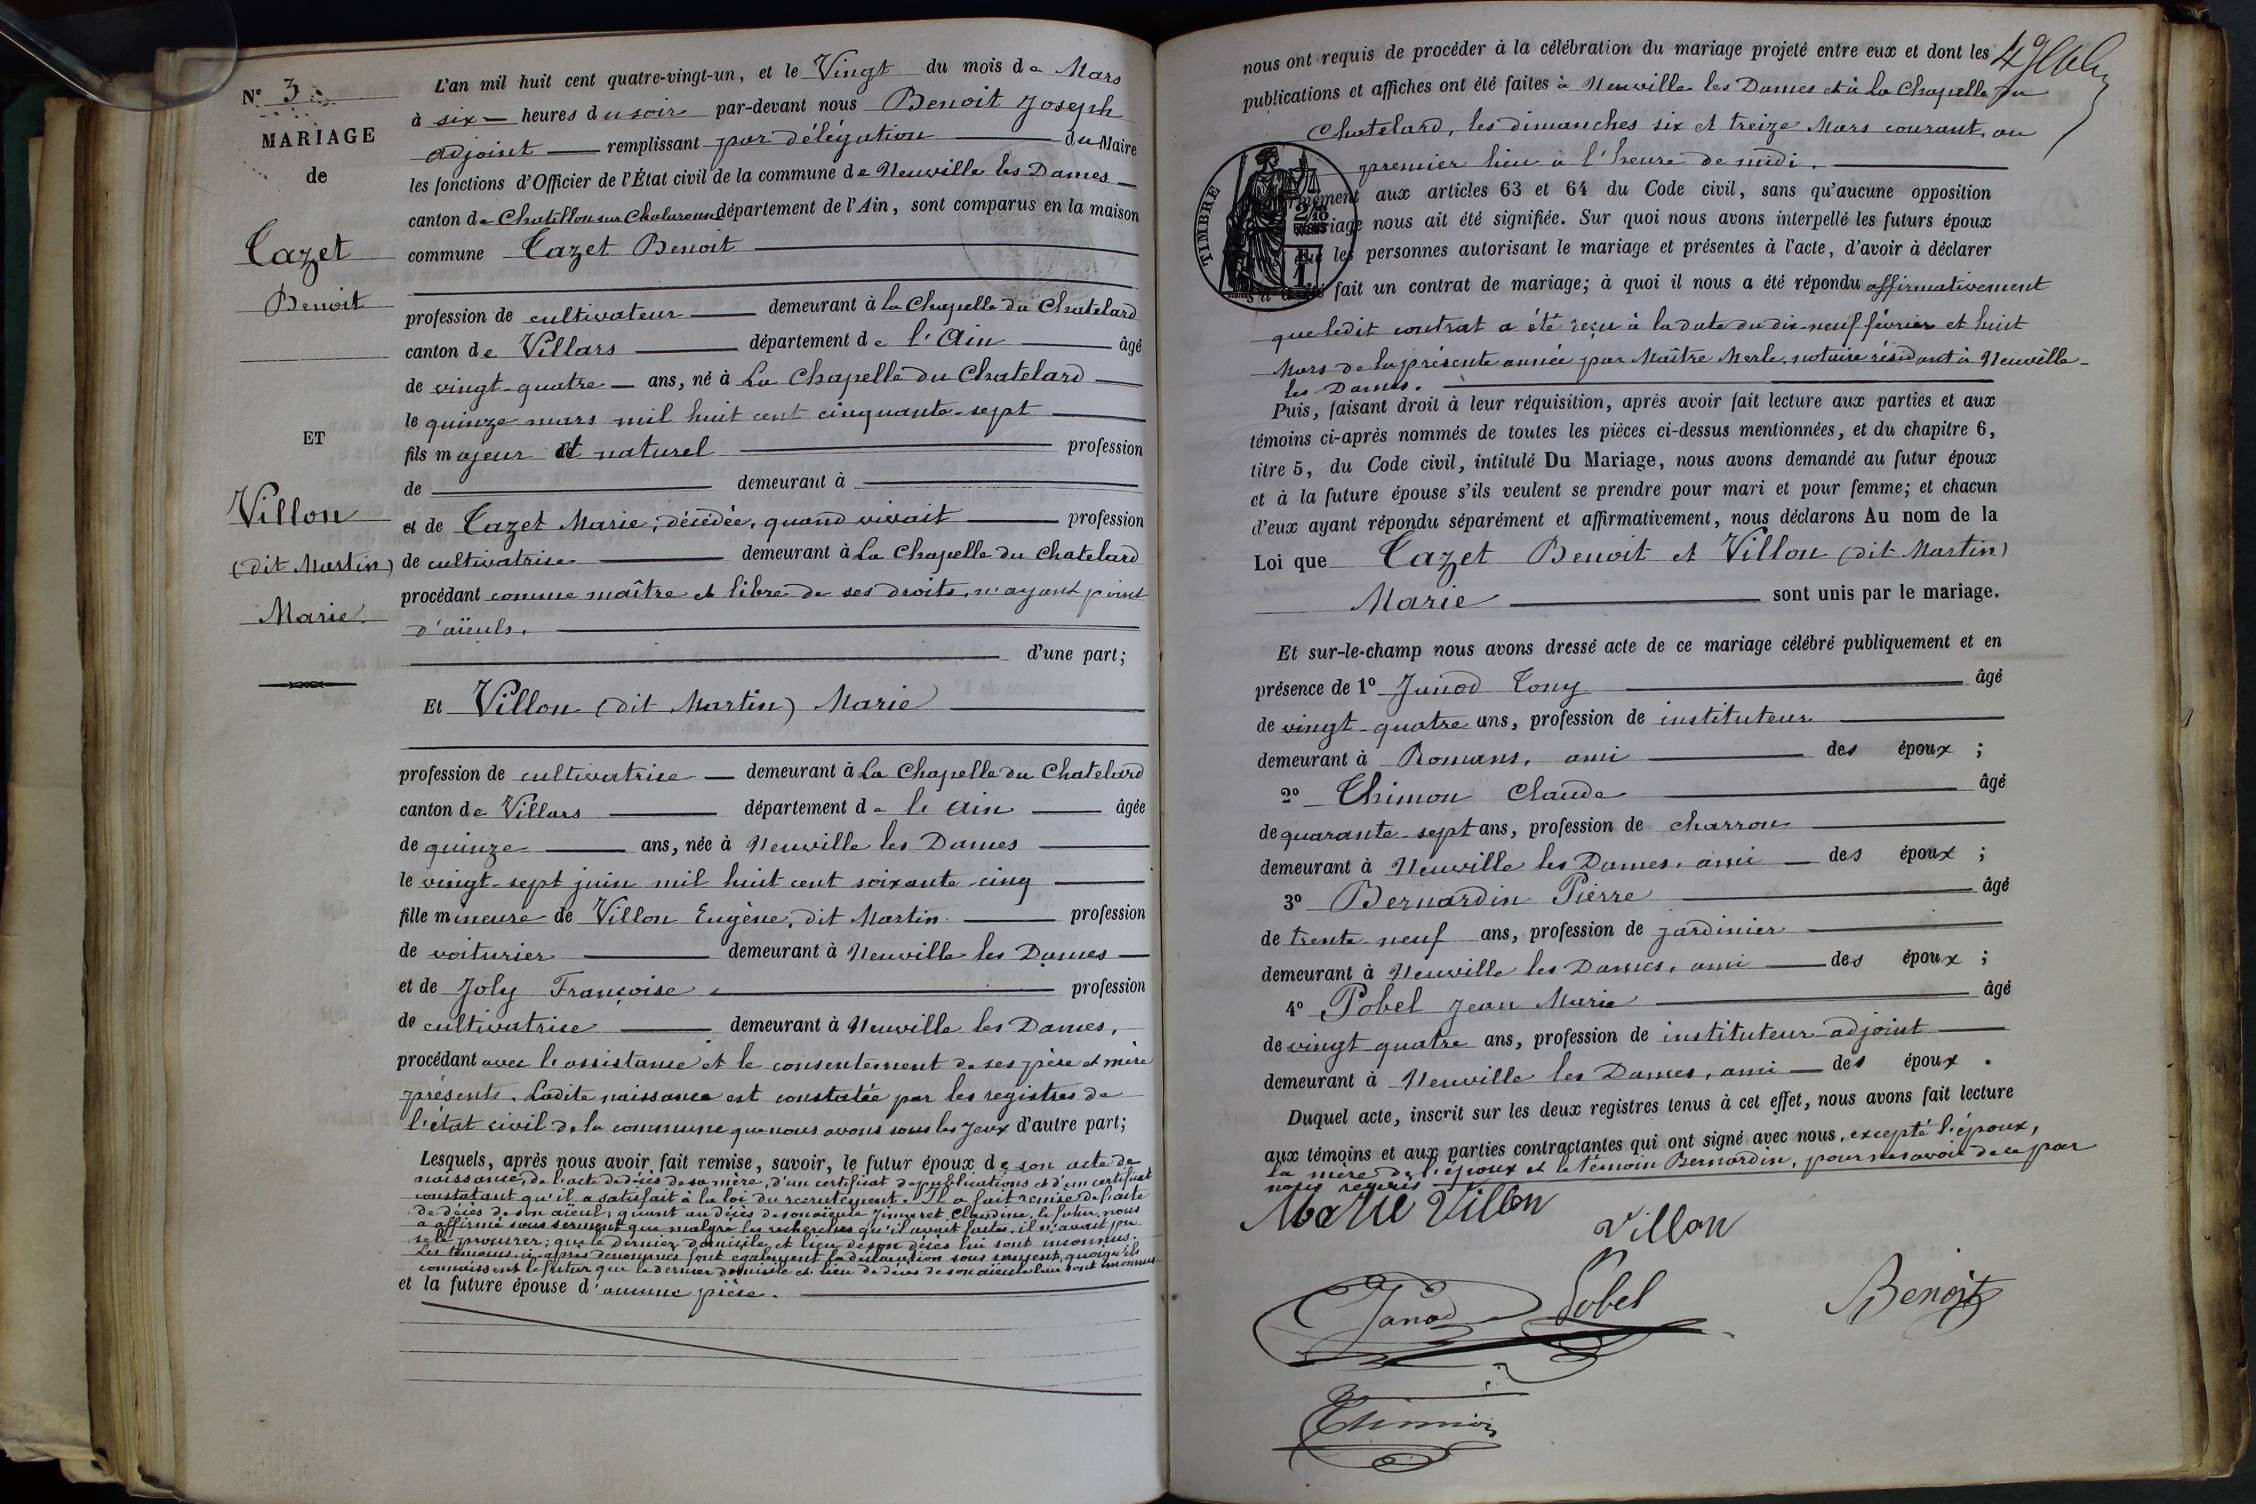 N° 3
MARIAGE
de
Cazet
Benoit
ET
Villon
(dit Martin)
Marie.
L'an mil huit cent quatre-vingt-un, et le Vingt du mois de Mars
à six heures du soir par-devant nous Benoit Joseph
adjoint remplissant par délégation du Maire
les fonctions d'Officier de l'État civil de la commune de Neuville les Dames
canton de Chatillon sur Chalaronne département de l'Ain, sont comparus en la maison
commune Cazet Benoit
profession de cultivateur demeurant à la Chapelle du Chatelard
canton de Villars département de l'Ain âgé
de vingt-quatre ans, né à La Chapelle du Chatelard
le quinze mars mil huit cent cinquante-sept
fils majeur et naturel profession
de demeurant à
et de Cazet Marie, décédée, quand vivait profession
de cultivatrice demeurant à La Chapelle du Chatelard
procédant comme maître et libre de ses droits, n'ayant point
d'aïeuls.
d'une part;
Et Villon (dit Martin) Marie
profession de cultivatrice demeurant à La Chapelle du Chatelard
canton de Villars département de l'Ain âgée
de quinze ans, née à Neuville les Dames
le vingt-sept juin mil huit cent soixante-cinq
fille mineure de Villon Eugène, dit Martin profession
de voiturier demeurant à Neuville les Dames
et de Joly Françoise profession
de cultivatrice demeurant à Neuville les Dames,
procédant avec l'assistance et le consentement de ses père et mère
présents. Ladite naissance est constatée par les registres de
l'état civil de la commune que nous avons sous les yeux d'autre part;
Lesquels, après nous avoir fait remise, savoir, le futur époux de son acte de
naissance, de l'acte de décès de sa mère, d'un certificat de publications et d'un certificat
constatant qu'il a satisfait à la loi du recrutement. Il a fait remise de l'acte
de décès de son aïeul; quant au décès de son aïeule Jimaret Claudine, le futur nous
a affirmé sous serment que malgré les recherches qu'il avait faites, il n'avait pu
se le procurer; que le dernier domicile et lieu de son décès lui sont inconnus.
Les témoins ci-après dénommés font également la déclaration sous serment, quoiqu'ils
connaissent le futur que le dernier domicile et lieu de décès de son aïeule leur sont inconnus
et la future épouse d'aucune pièce.
nous ont requis de procéder à la célébration du mariage projeté entre eux et dont les
publications et affiches ont été faites à Neuville les Dames et à La Chapelle du
Chatelard, les dimanches six et treize Mars courant, au
premier lieu à l'heure de midi.
TIMBRE
2/10
aux articles 63 et 64 du Code civil, sans qu'aucune opposition
nous ait été signifiée. Sur quoi nous avons interpellé les futurs époux
les personnes autorisant le mariage et présentes à l'acte, d'avoir à déclarer
fait un contrat de mariage; à quoi il nous a été répondu affirmativement
que ledit contrat a été reçu à la date du dix-neuf février et huit
Mars de la présente année par Maître Merle, notaire résidant à Neuville-
les Dames.
Puis, faisant droit à leur réquisition, après avoir fait lecture aux parties et aux
témoins ci-après nommés de toutes les pièces ci-dessus mentionnées, et du chapitre 6,
titre 5, du Code civil, intitulé Du Mariage, nous avons demandé au futur époux
et à la future épouse s'ils veulent se prendre pour mari et pour femme; et chacun
d'eux ayant répondu séparément et affirmativement, nous déclarons Au nom de la
Loi que Cazet Benoit et Villon (dit Martin)
Marie sont unis par le mariage.
Et sur-le-champ nous avons dressé acte de ce mariage célébré publiquement et en
présence de 1° Junod Tony âgé
de vingt-quatre ans, profession de instituteur
demeurant à Romans, ami des époux ;
2° Thimon Claude âgé
de quarante-sept ans, profession de charron
demeurant à Neuville les Dames, ami des époux ;
3° Bernardin Pierre âgé
de trente-neuf ans, profession de jardinier
demeurant à Neuville les Dames, ami des époux ;
4° Pobel Jean Marie âgé
de vingt-quatre ans, profession de instituteur-adjoint
demeurant à Neuville les Dames, ami des époux .
Duquel acte, inscrit sur les deux registres tenus à cet effet, nous avons fait lecture
aux témoins et aux parties contractantes qui ont signé avec nous, excepté l'époux,
la mère de l'époux et le témoin Bernardin, pour ne savoir de ce par
nous requis
Marie Villon
Villon
Junod
Pobel
Benoit
Thimon